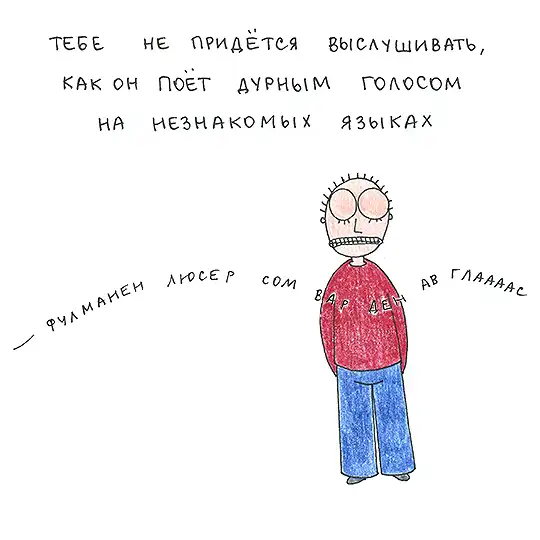 ТЕБЕ НЕ ПРИДЁТСЯ ВЫСЛУШИВАТЬ,
КАК ОН ПОЁТ ДУРНЫМ ГОЛОСОМ
НА НЕЗНАКОМЫХ ЯЗЫКАХ
— ФУЛМАНЕН ЛЮСЕР СОМ ВАР ДЕН АВ ГЛАААС